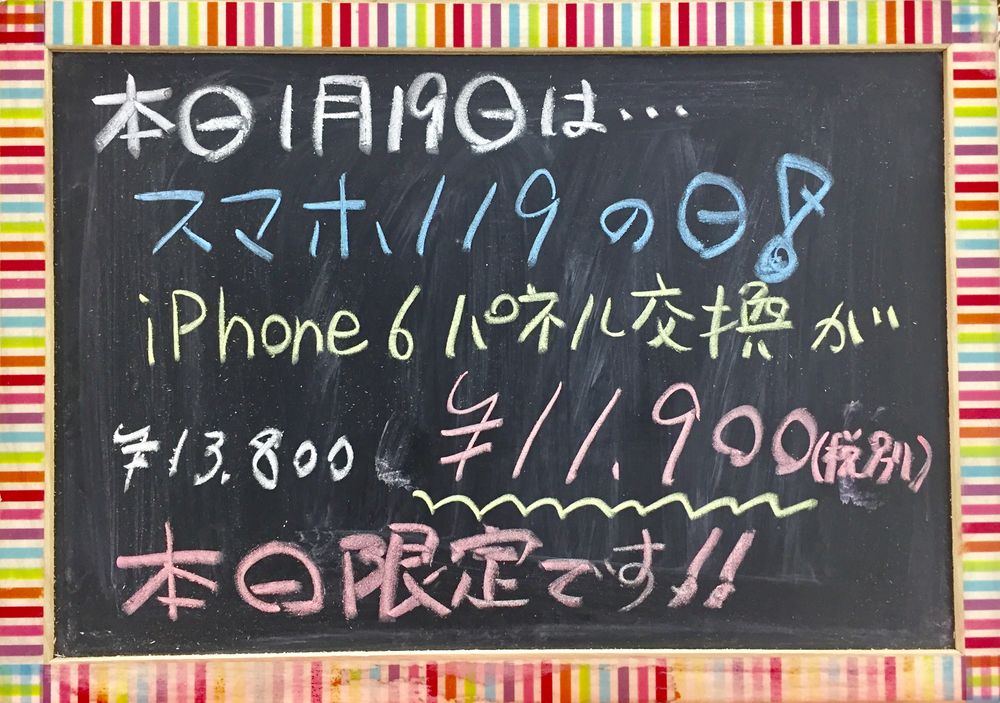 本日1月19日は…
スマホ119の日!
iPhone6パネル交換が
¥13.800 ¥11.900(税別)
本日限定です!!